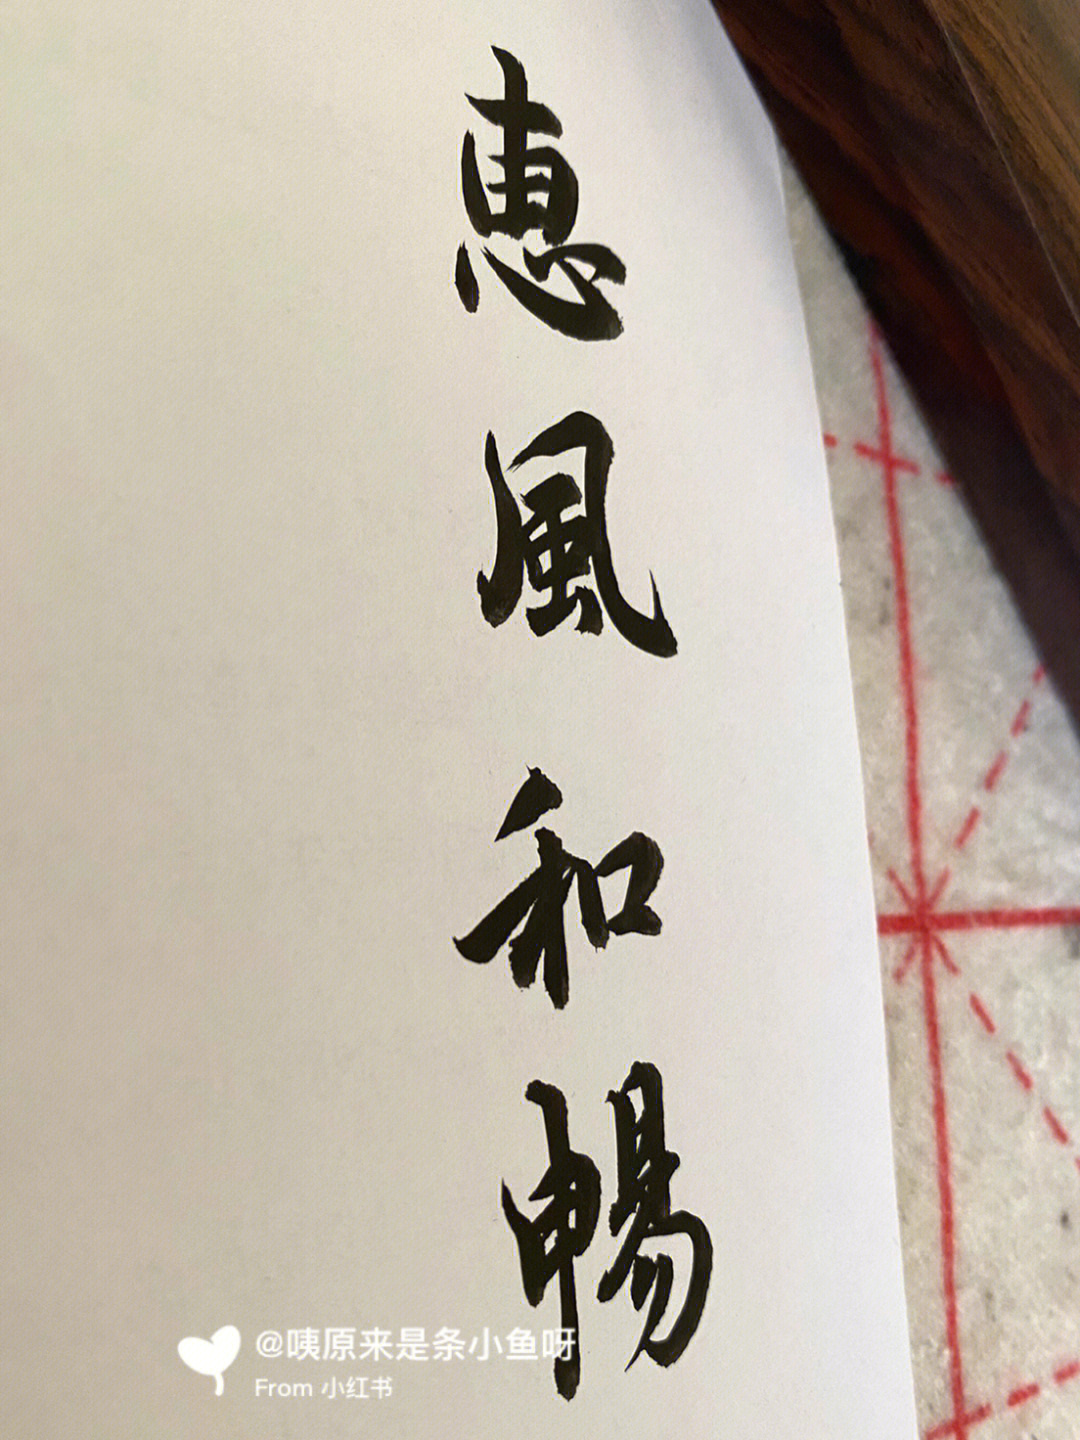 恵風和暢
@咦原来是条小鱼呀
From 小红书